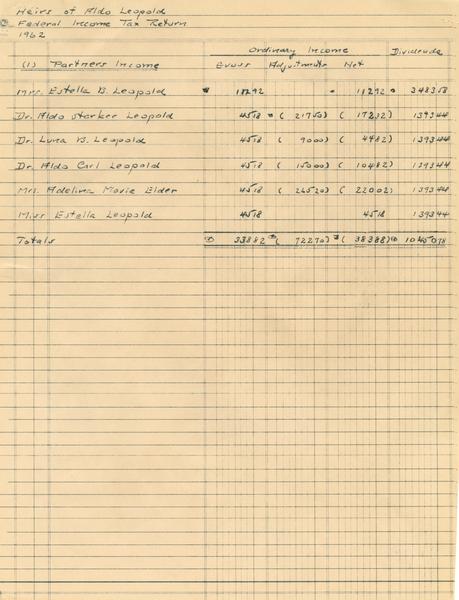 Heirs of Aldo Leopold
Federal Income Tax Return
1962
Ordinary Income Dividends
(1) Partners Income Gross Adjustments Net
Mrs. Estella B. Leopold 11292 11292 348358
Dr. Aldo Starker Leopold 4518 ( 21750) ( 17232) 139344
Dr. Luna B. Leopold 4518 ( 9000) ( 4482) 139344
Dr. Aldo Carl Leopold 4518 ( 15000) ( 10482) 139344
Mrs. Adelina Marie Elder 4518 ( 26520) ( 22002) 139344
Miss Estella Leopold 4518 4518 139344
Totals 33882 ( 72270) ( 38388) 1045078